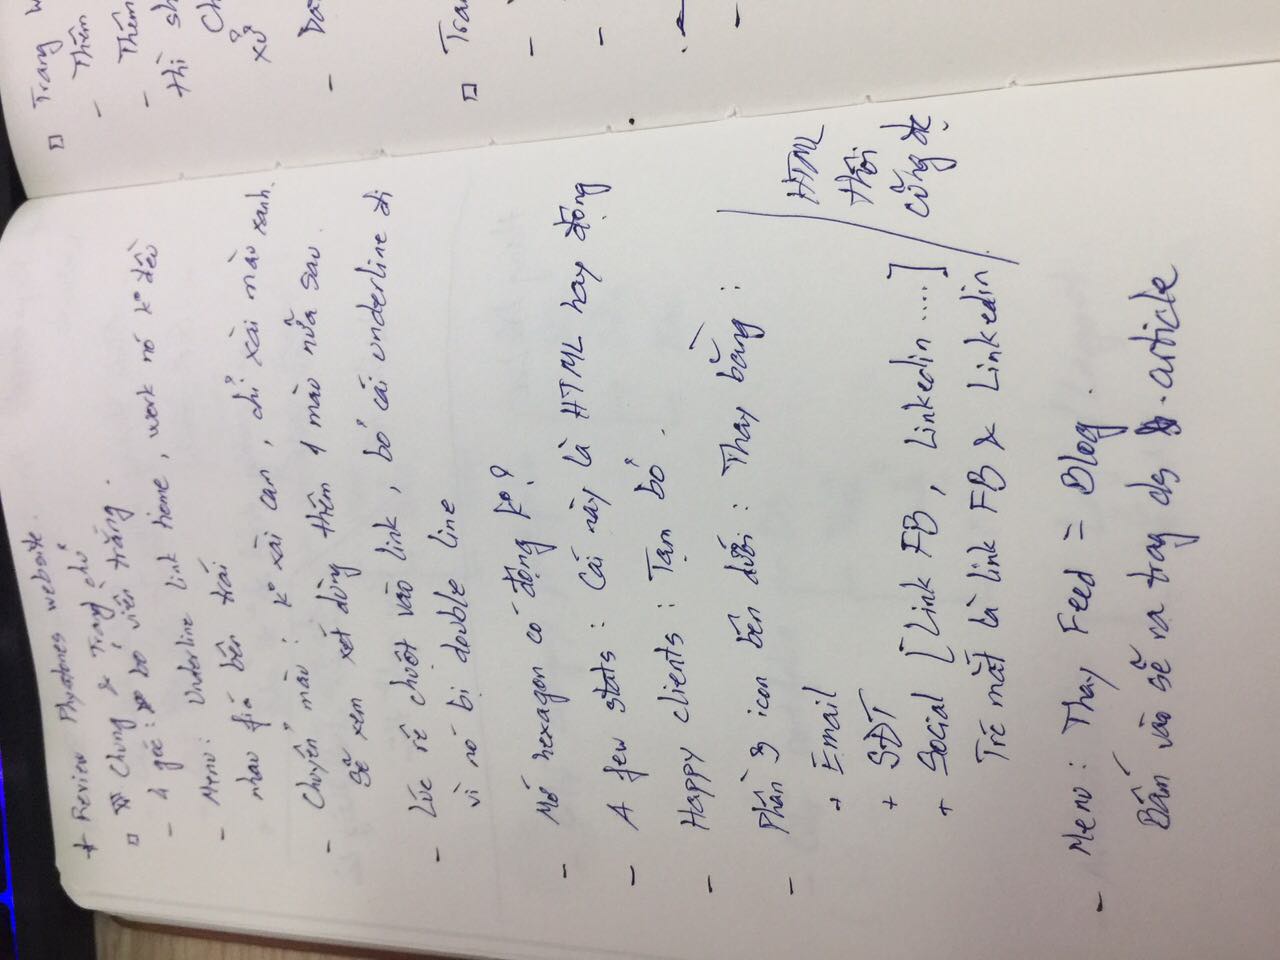 + Review Phystones website.
□ Chung & Trang chủ
- 4 góc: bỏ viền trắng.
- Menu: Underline link home, work nó k° đều
nhau fía bên trái
- Chuyển màu: k° xài cam, chỉ xài màu xanh.
sẽ xem xét dùng thêm 1 màu nữa sau.
- Lúc rê chuột vào link, bỏ cái underline đi
vì nó bị double line
- Mớ hexagon có động k°?
- A few stats: Cái này là HTML hay động
- Happy clients: Tạm bỏ.
- Phần 3 icon bên dưới: Thay bằng:
+ Email
+ SĐT
+ Social [Link FB, Linkedin ....]
Trc mắt là link FB & Linkedin
HTML
thôi
cũng đc
- Menu: Thay Feed = Blog.
Bấm vào sẽ ra trag ds article
□ Trang W
- Thêm
- Thêm
thì sh
Ch
xử
-
□ Tran
-
-
-
-